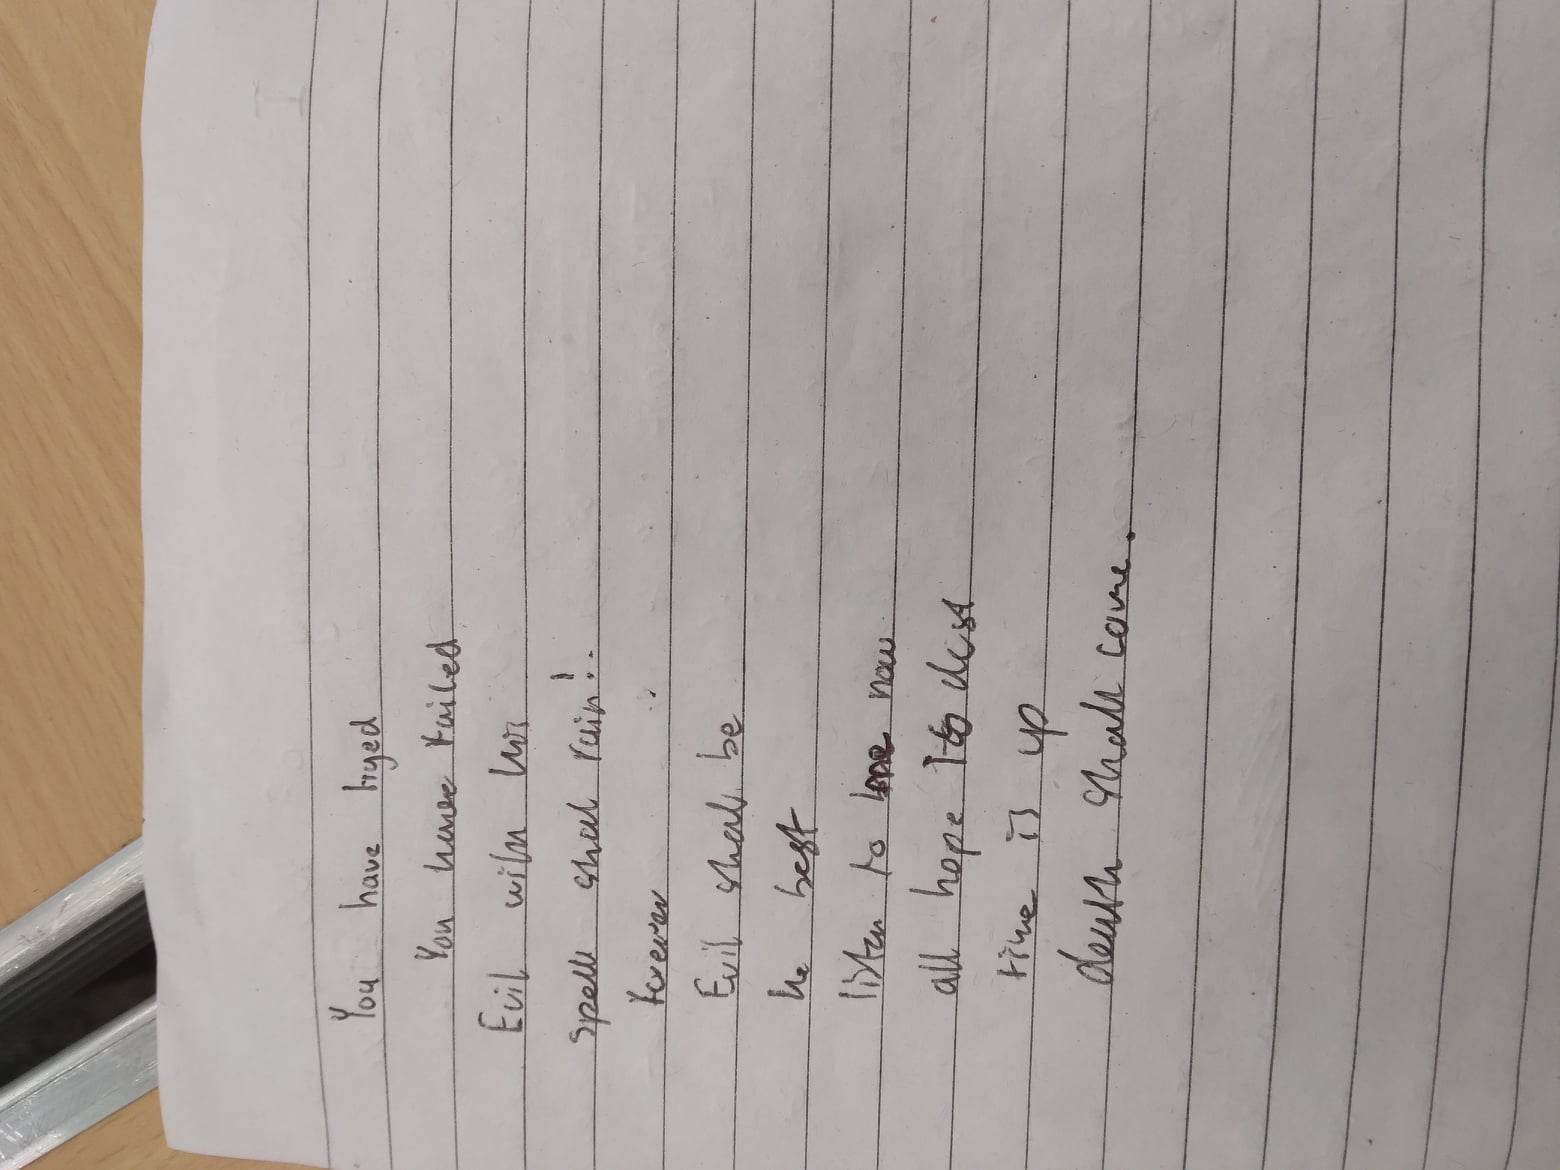 You have tryed
You have failed
Evil will his
spell shall ruin!..
forever
Evil shall be
he best
listen to me now
all hope is dust
time is up
death shall come.